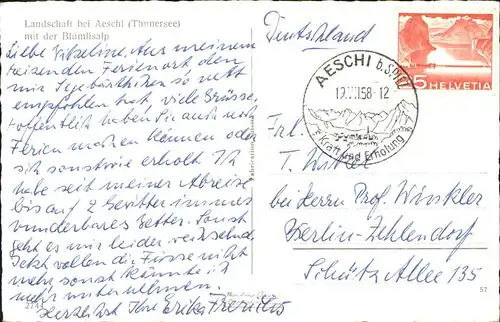 Landschaft bei Aeschi (Thunersee)
mit der Blümlisalp
Liebe Aus meinem
reisenden Ferienort den
mir so nett
empfohlen hat, viele Grüsse,
hoffentlich haben Sie auch noch
Ferien machen können oder
sich sonstwie erholt. Ich
habe seit meiner Abreise
bis auf 2 Gewitter immer
wunderbares Wetter. Sonst
geht es mir leider
Jetzt wollen die Füsse nicht
mehr, sonst könnte ich
mehr unternehmen.
Herzlichst Ihre Erika
Deutschland
AESCHI b. SPIEZ
19.VII58-12
Kraft und Erholung
5 HELVETIA
Frl.
T.
bei Herrn Prof. Winkler
Berlin-Zehlendorf
Schütz Allee 135
57